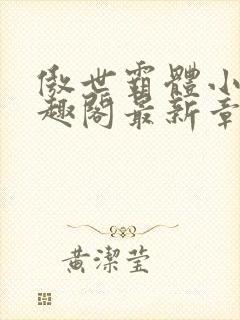 傲世霸體小
趣閣最新章
黃潔瑩